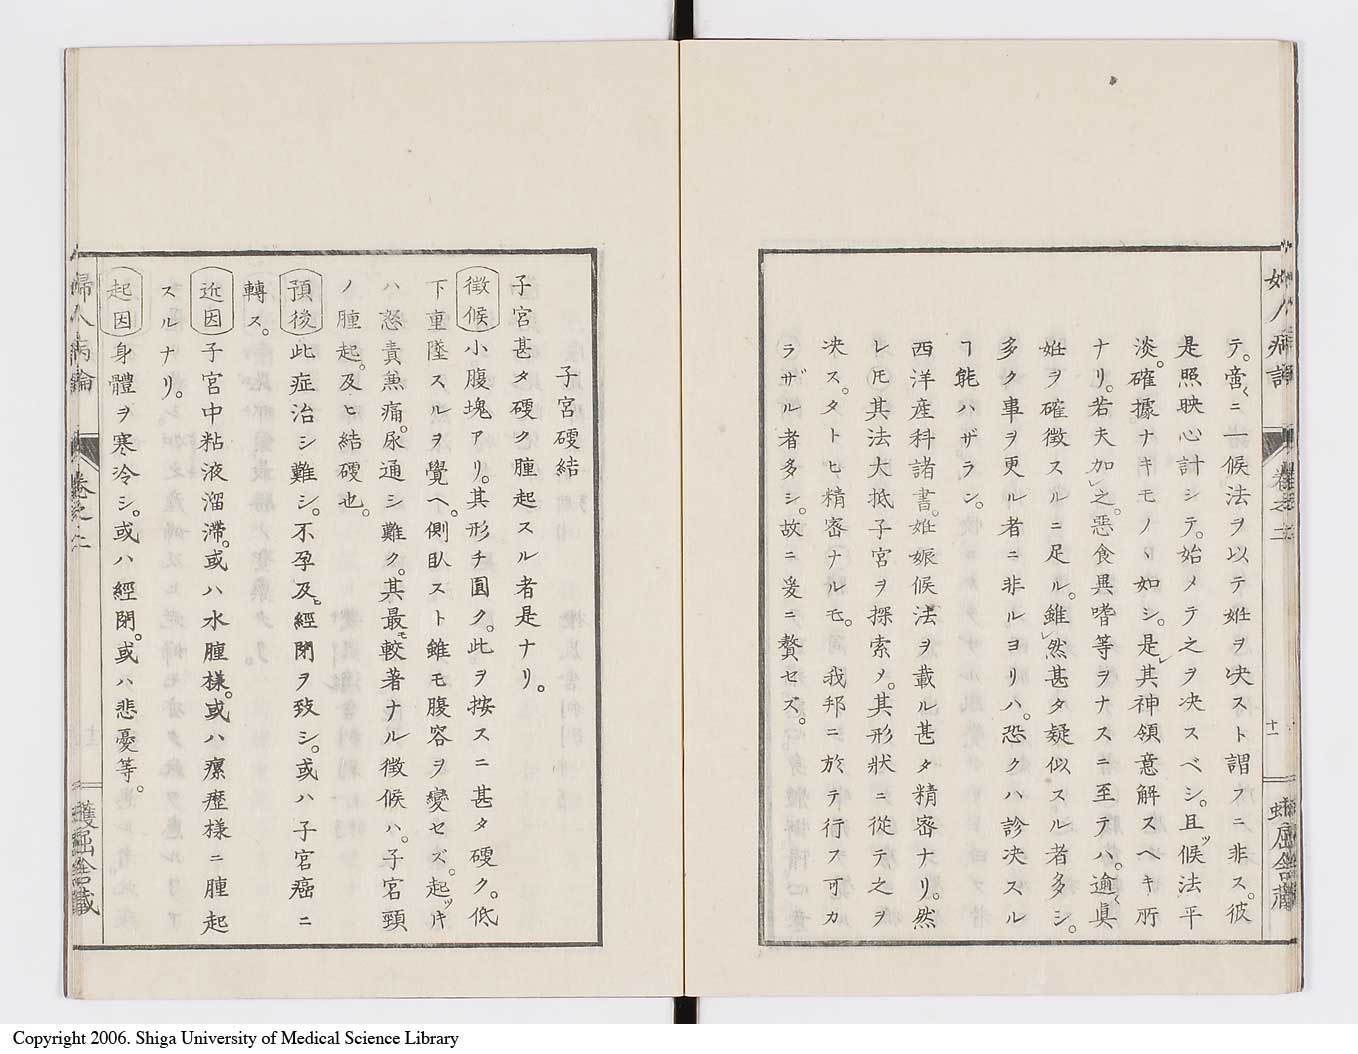 婦人病論 卷之二 十一 蠖屈舍藏
テ。嘗ニ一候法ヲ以テ姙ヲ决スト謂フニ非ス。彼
是照映心計シテ。始メテ之ヲ决スベシ。且ッ候法平
淡。確據ナキモノヽ如シ。是レ其神領意解スヘキ所
ナリ。若夫加之。惡食異嗜等ヲナスニ至テハ。逾〻眞
姙ヲ確徴スルニ足ル。雖然甚タ疑似スル者多シ。
多ク事ヲ更ル者ニ非ルヨリハ。恐クハ診决スル
ヿ能ハザラン。
西洋産科諸書。姙娠候法ヲ載ル甚タ精密ナリ。然
レ𪜈其法大抵子宮ヲ探索メ。其形狀ニ從テ之ヲ
决ス。タトヒ精密ナルモ。我邦ニ於テ行フ可カ
ラザル者多シ。故ニ爰ニ贅セズ。
子宮硬結
子宮甚タ硬ク腫起スル者是ナリ。
徴候 小腹塊アリ。其形チ圓ク。此ヲ按スニ甚タ硬ク。低
下重墜スルヲ覺ヘ。側臥スト雖モ腹容ヲ變セズ。起ッキ
ハ怒責焦痛。尿通シ難ク。其最モ較著ナル徴候ハ。子宮頸
ノ腫起。及ヒ結硬也。
預後 此症治シ難シ。不孕及ヒ經閉ヲ致シ。或ハ子宮癌ニ
轉ス。
近因 子宮中粘液溜滯。或ハ水腫樣。或ハ瘰癧樣ニ腫起
スルナリ。
起因 身體ヲ寒冷シ。或ハ經閉。或ハ悲憂等。
婦人病論 卷之二 蠖屈舍藏
Copyright 2006. Shiga University of Medical Science Library